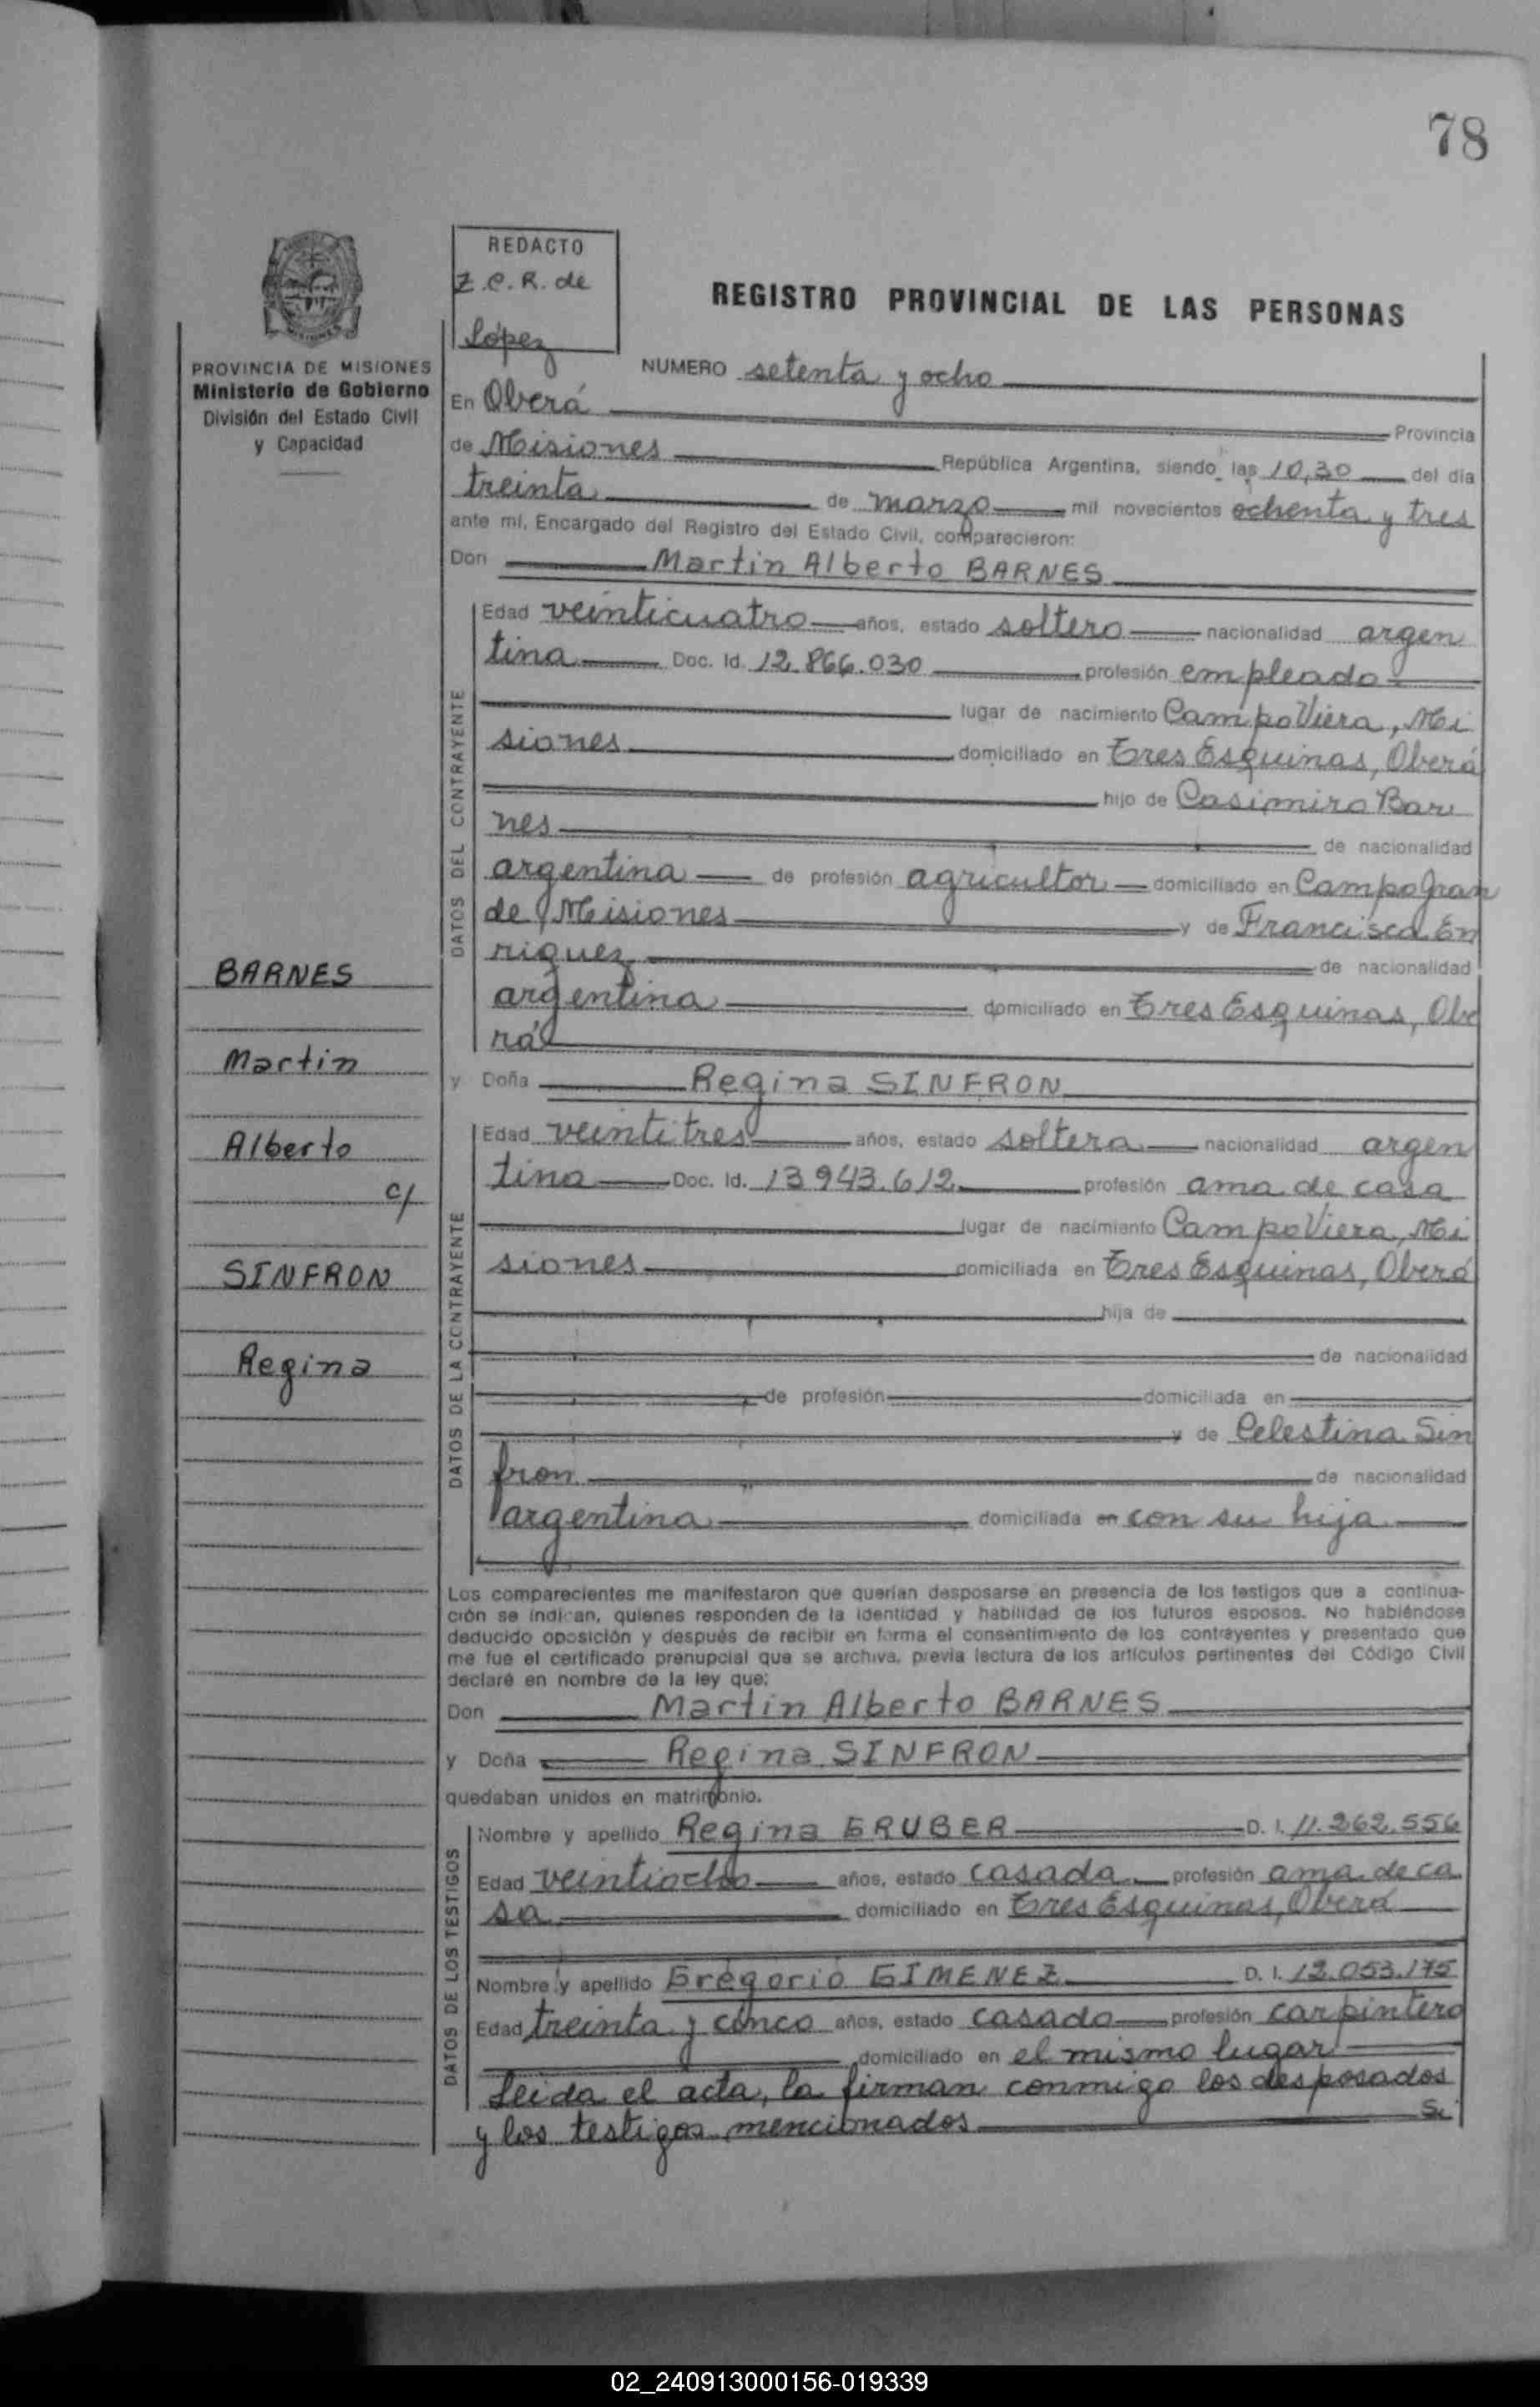 78
REDACTO
Z.C.R. de
López
REGISTRO PROVINCIAL DE LAS PERSONAS
PROVINCIA DE MISIONES
Ministerio de Gobierno
División del Estado Civil
y Capacidad
NUMERO setenta y ocho
En Oberá
Provincia
de Misiones República Argentina, siendo las 10,30 del día
treinta de marzo mil novecientos ochenta y tres
ante mí, Encargado del Registro del Estado Civil, comparecieron:
Don Martin Alberto BARNES
DATOS DEL CONTRAYENTE
Edad veinticuatro años, estado soltero nacionalidad argen
tina Doc. Id. 12.866.030 profesión empleado
lugar de nacimiento Campo Viera, Mi
siones domiciliado en Tres Esquinas, Oberá
hijo de Casimiro Bar
nes de nacionalidad
argentina de profesión agricultor domiciliado en Campo Gran
de, Misiones y de Francisca En
riquez de nacionalidad
argentina domiciliado en Tres Esquinas, Obe
rá
y Doña Regina SINFRON
DATOS DE LA CONTRAYENTE
Edad veintitres años, estado soltera nacionalidad argen
tina Doc. Id. 13.943.612 profesión ama de casa
lugar de nacimiento Campo Viera, Mi
siones domiciliada en Tres Esquinas, Oberá
hija de
de nacionalidad
de profesión domiciliada en
y de Celestina Sin
fron de nacionalidad
argentina domiciliada en con su hija
BARNES
Martin
Alberto
c/
SINFRON
Regina
Los comparecientes me manifestaron que querían desposarse en presencia de los testigos que a continua-
ción se indican, quienes responden de la identidad y habilidad de los futuros esposos. No habiéndose
deducido oposición y después de recibir en forma el consentimiento de los contrayentes y presentado que
me fue el certificado prenupcial que se archiva, previa lectura de los artículos pertinentes del Código Civil
declaré en nombre de la ley que:
Don Martin Alberto BARNES
y Doña Regina SINFRON
quedaban unidos en matrimonio.
DATOS DE LOS TESTIGOS
Nombre y apellido Regina GRUBER D. I. 11.262.556
Edad veintiocho años, estado casada profesión ama de ca
sa domiciliado en Tres Esquinas, Oberá
Nombre y apellido Gregorio GIMENEZ D. I. 12.053.175
Edad treinta y cinco años, estado casado profesión carpintero
domiciliado en el mismo lugar
Leida el acta, la firman conmigo los desposados
y los testigos mencionados
02_240913000156-019339